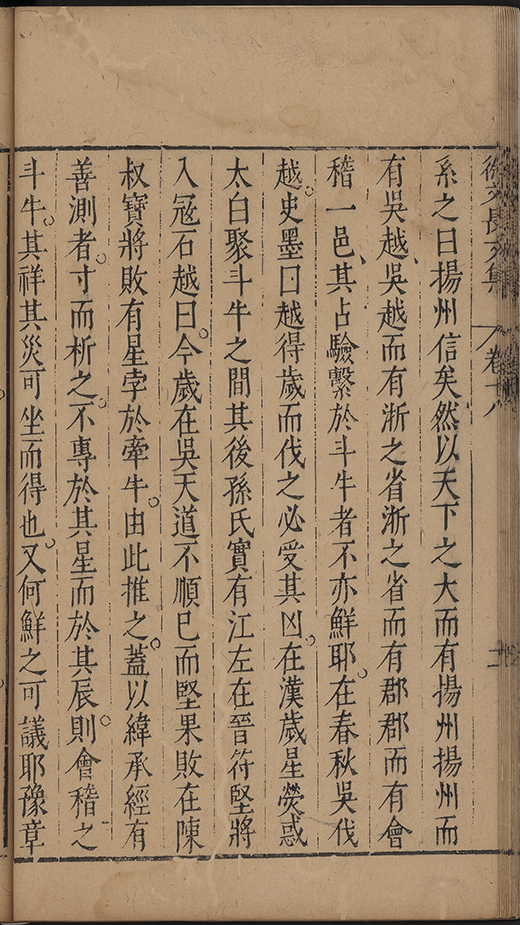 徐文長文集 卷十八
系之曰揚州信矣然以天下之大而有揚州揚州而
有吳越、吳越而有浙之省浙之省而有郡郡而有會
稽一邑、其占驗繫於斗牛者不亦鮮耶。在春秋吳伐
越。史墨曰越得歲而伐之必受其凶。在漢歲星熒惑
太白聚斗牛之間其後孫氏實有江左在晉苻堅將
入冦石越曰。今歲在吳天道不順已而堅果敗在陳
叔寶將敗有星孛於牽牛。由此推之。蓋以緯承經有
善測者。寸而析之。不專於其星而於其辰。則會稽之
斗牛。其祥其災可坐而得也。又何鮮之可議耶豫章